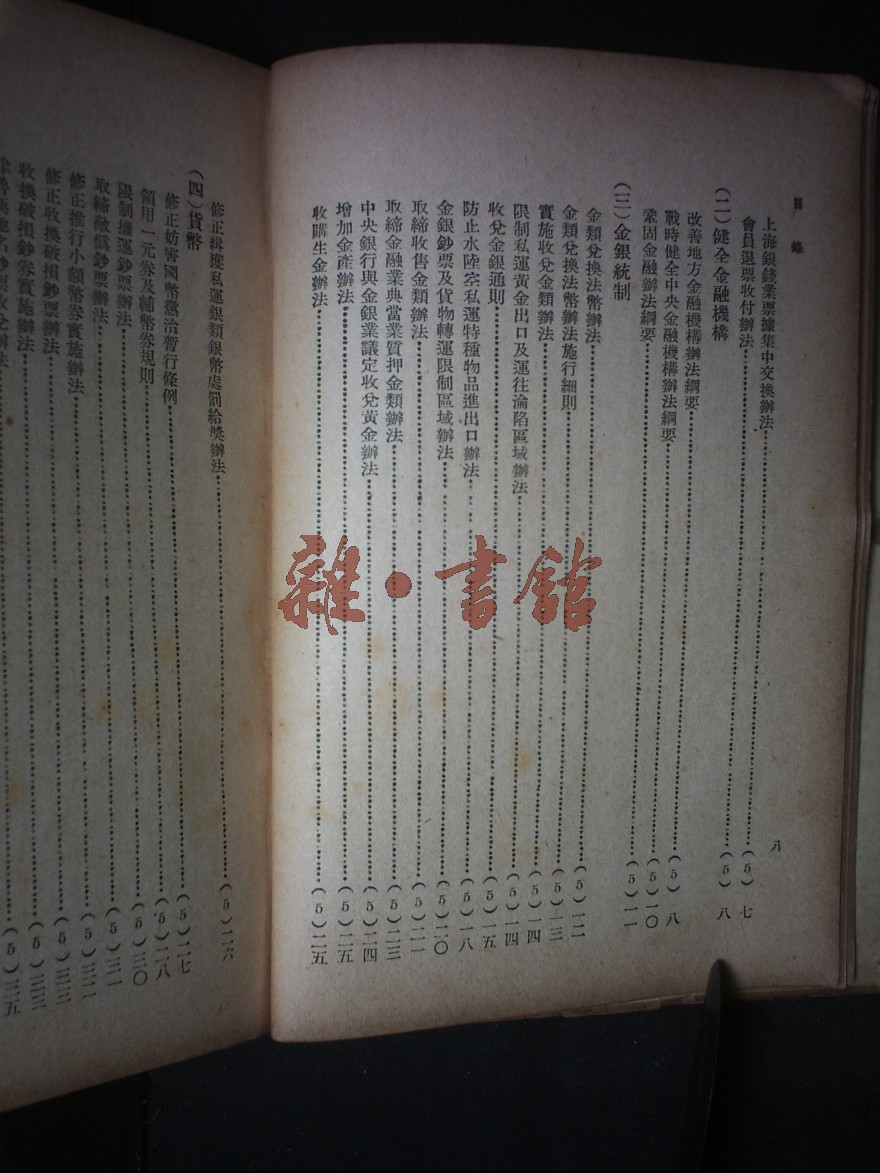 目錄 八
上海銀錢業票據集中交換辦法……(5)七
會員退票收付辦法……(5)八
(二)健全金融機構
改善地方金融機構辦法綱要……(5)八
戰時健全中央金融機構辦法綱要……(5)一〇
鞏固金融辦法綱要……(5)一一
(三)金銀統制
金類兌換法幣辦法……(5)一二
金類兌換法幣辦法施行細則……(5)一三
實施收兌金類辦法……(5)一四
限制私運黃金出口及運往淪陷區域辦法……(5)一四
收兌金銀通則……(5)一五
防止水陸空私運特種物品進出口辦法……(5)一八
金銀鈔票及貨物轉運限制區域辦法……(5)二〇
取締收售金類辦法……(5)二一
取締金融業典當業質押金類辦法……(5)二三
中央銀行與金銀業議定收兌黃金辦法……(5)二四
增加金產辦法……(5)二五
收購生金辦法……(5)二五
修正緝獲私運銀類銀幣處罰給獎辦法……(5)二六
(四)貨幣
修正妨害國幣懲治暫行條例……(5)二七
領用一元券及輔幣券規則……(5)二八
限制攜運鈔票辦法……(5)三〇
取締敵偽鈔票辦法……(5)三一
修正推行小額幣券實施辦法……(5)三二
修正收換破損鈔票辦法……(5)三三
收換破損鈔券實施辦法……(5)三三
地名鈔票收兌辦法……(5)三五
雜·書館